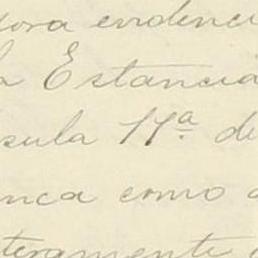 ora evidenci
a Estancia
sula 17ª de
nca como
teramente